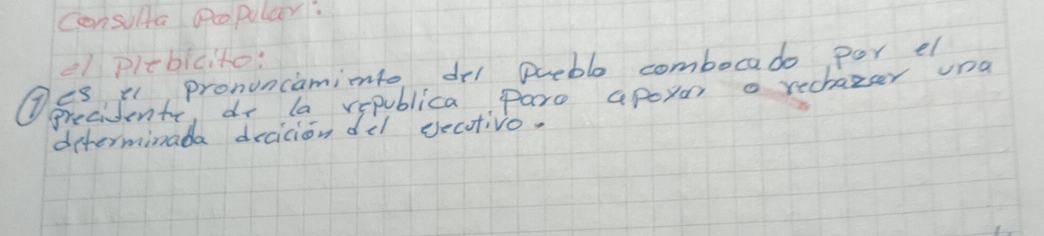 Consulta Popular:
el plebicito:
① es el pronunciamiento del pueblo combocado por el
precidente, de la republica para apoyar o rechazar una
determinada decición del ejecutivo.